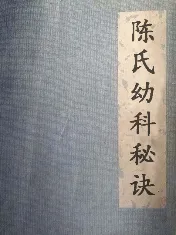 陈氏幼科秘诀